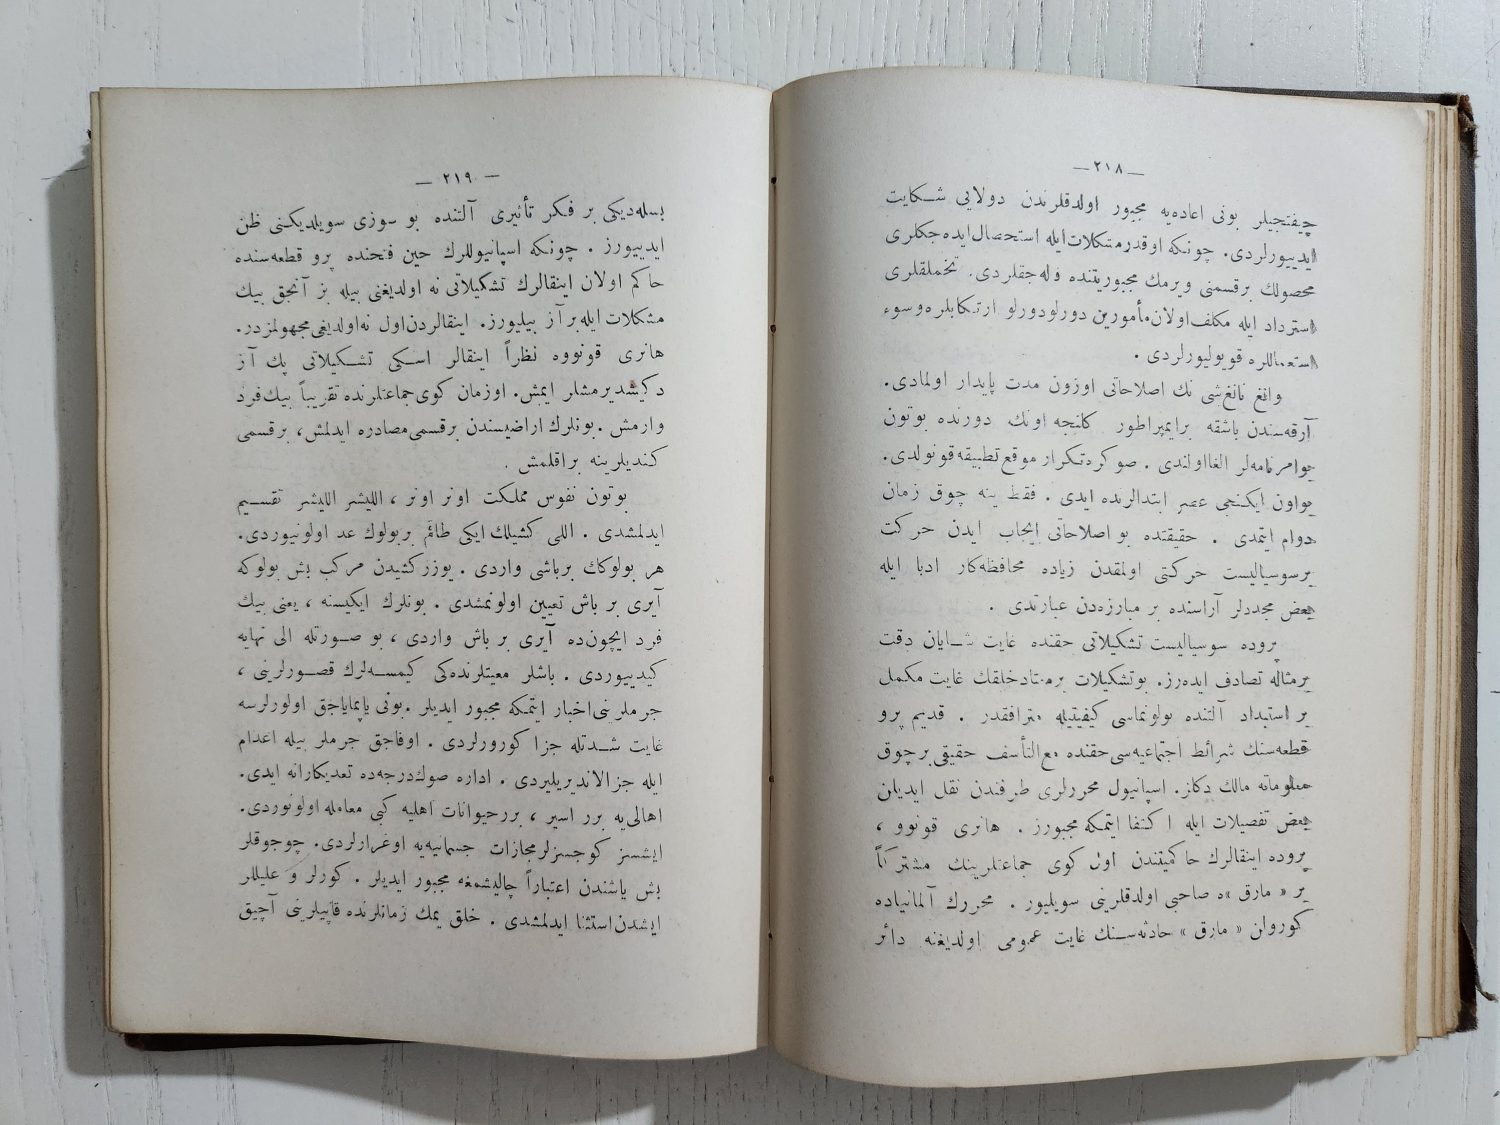 —٢١٨—
چیفتجیلر بونی اعاده‌یه مجبور اولدقلرندن دولایی شـکایت
ایدییورلردی. چونکه اوقدر مشکلات ایله استحصال ایده‌جکلری
محصولك برقسمنی ویرمك مجبوریتنده قاله‌جقلردی. تخملقلری
استرداد ایله مکلف اولان مأمورین دورلودورلو ارتکابلره وسوء
استعماللره قویولیورلردی .
وانغ نانغ‌شی نك اصلاحاتی اوزون مدت پایدار اولمادی.
آرقه‌سندن باشقه برایمپراطور کلنجه اونك دورنده بوتون
اوامرنامه‌لر الغااولندی . صوکره‌تکرار موقع تطبیقه قونولدی.
بواون ایکنجی عصر ابتدالرنده ایدی . فقط ینه چوق زمان
دوام ایتمدی . حقیقتده بو اصلاحاتی ایجاب ایدن حرکت
برسوسیالیست حرکتی اولمقدن زیاده محافظه‌کار ادبا ایله
بعض مجددلر آراسنده بر مبارزه‌دن عبارتدی .
پروده سوسیالیست تشکیلاتی حقنده غایت شـایان دقت
برمثاله تصادف ایده‌رز. بوتشکیلات بر ممتاد خلقك غایت مکمل
بر استبداد آلتنده بولونماسی کیفیتیله مترافقدر . قدیم پرو
قطعه‌سنك شرائط اجتماعیه‌سی حقنده مع‌التأسف حقیقی برچوق
معلوماته مالك دکلز. اسپانیول محررلری طرفندن نقل ایدیان
بعض تفصیلات ایله اکتفا ایتمکه مجبورز . هانری قونوو ،
پروده اینقالرك حاکمیتندن اول کوی جماعتلرینك مشترکاً
بر « مارق »ه صاحبی اولدقلرینی سویلیور . محررك آلمانیاده
کورولن « مارق » حادثه‌سـنك غایت عمومی اولدیغنه دائر
— ٢١٩ —
بسله‌دیکی بر فکر تأثیری آلتنده بو سوزی سویلدیکنی ظن
ایدییورز . چونکه اسپانیوللرك حین فتحنده پرو قطعه‌سنده
حاکم اولان اینقالرك تشکیلاتی نه اولدیغنی بیله بز آنجق بیك
مشکلات ایله برآز بیلیورز. اینقالردن اول نه اولدیغی مجهولمزدر.
هانری قونووه نظراً اینقالر اسکی تشـکیلاتی پك آز
دکیشدیرمشلر ایمش. اوزمان کوی جماعتلرنده تقریباً بیك فرد
وارمش . بونلرك اراضیسندن برقسمی مصادره ایدلمش، برقسمی
کندیلرینه براقلمش .
بوتون نفوس مملکت اونر اونر ، اللیشر اللیشر تقسـیم
ایدلمشدی . اللی کشیلك ایکی طاقم بربولوك عد اولونیوردی.
هر بولوکك برباشی واردی . یوزرکشیدن مرکب بش بولوکه
آیری بر باش تعیین اولونمشدی . بونلرك ایکیسنه ، یعنی بیك
فرد ایچون‌ده آیری بر باش واردی ، بو صـورتله الی نهایه
کیدییوردی . باشلر معیتلرنده‌کی کیمسـه‌لرك قصـورلرینی ،
جرملرینی اخبار ایتمکه مجبور ایدیلر . بونی یاپمایاجق اولورلرسه
غایت شـدتله جزا کورورلردی . اوفاجق جرملر بیله اعدام
ایله جزالاندیریلیردی . اداره صوك‌درجه‌ده تعدیکارانه ایدی.
اهالی‌یه برر اسیر ، برر حیوانات اهلیه کبی معامله اولونوردی.
ایشسز کوجسزلر مجازات جسمانیه‌یه اوغرارلردی. چوجوقلر
بش یاشندن اعتباراً چالیشمغه مجبور ایدیلر . کورلر و علیللر
ایشدن استثنا ایدلمشدی . خلق یمك زمانلرنده قاپیلرینی آچیق